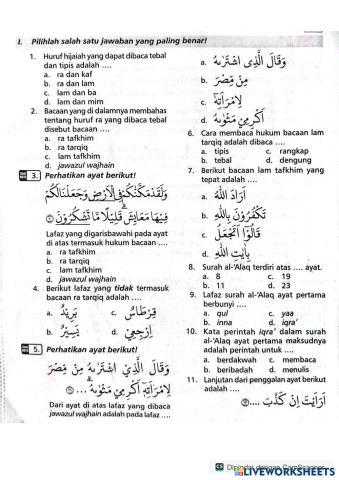 I. Pilihlah salah satu jawaban yang paling benar!
1. Huruf hijaiah yang dapat dibaca tebal
dan tipis adalah ....
a. ra dan kaf
b. ra dan lam
c. lam dan ba
d. lam dan mim
2. Bacaan yang di dalamnya membahas
tentang huruf ra yang dibaca tebal
disebut bacaan ....
a. ra tafkhim
b. ra tarqiq
c. lam tafkhim
d. jawazul wajhain
3. Perhatikan ayat berikut!
وَلَقَدْ مَكَّنّٰكُمْ فِى الْاَرْضِ وَجَعَلْنَا لَكُمْ
فِيْهَا مَعَايِشَ قَلِيْلًا مَّا تَشْكُرُوْنَ
Lafaz yang digarisbawahi pada ayat
di atas termasuk hukum bacaan ....
a. ra tafkhim
b. ra tarqiq
c. lam tafkhim
d. jawazul wajhain
4. Berikut lafaz yang tidak termasuk
bacaan ra tarqiq adalah ....
a. يُرِيْدُ c. قِرْطَاسٌ
b. يَسِيْرٌ d. اِرْجِعِيْ
5. Perhatikan ayat berikut!
وَقَالَ الَّذِى اشْتَرٰىهُ مِنْ مِّصْرَ
لِامْرَاَتِهٖٓ اَكْرِمِيْ مَثْوٰىهُ ....
Dari ayat di atas lafaz yang dibaca
jawazul wajhain adalah pada lafaz ....
a. وَقَالَ الَّذِى اشْتَرٰىهُ
b. مِنْ مِّصْرَ
c. لِامْرَاَتِهٖٓ
d. اَكْرِمِيْ مَثْوٰىهُ
6. Cara membaca hukum bacaan lam
tarqiq adalah dibaca ....
a. tipis c. rangkap
b. tebal d. dengung
7. Berikut bacaan lam tafkhim yang
tepat adalah ....
a. اَرَادَ اللّٰهُ
b. تَكْفُرُوْنَ بِاللّٰهِ
c. قَالُوْٓا اَتَجْعَلُ
d. بِاٰيٰتِ اللّٰهِ
8. Surah al-'Alaq terdiri atas .... ayat.
a. 8 c. 19
b. 11 d. 23
9. Lafaz surah al-'Alaq ayat pertama
berbunyi ....
a. qul c. yaa
b. inna d. iqra'
10. Kata perintah iqra' dalam surah
al-'Alaq ayat pertama maksudnya
adalah perintah untuk ....
a. berdakwah c. membaca
b. beribadah d. menulis
11. Lanjutan dari penggalan ayat berikut
adalah ....
اَرَاَيْتَ اِنْ كَذَّبَ ....
CS Dipindai dengan CamScanner
LIVEWORKSHEETS